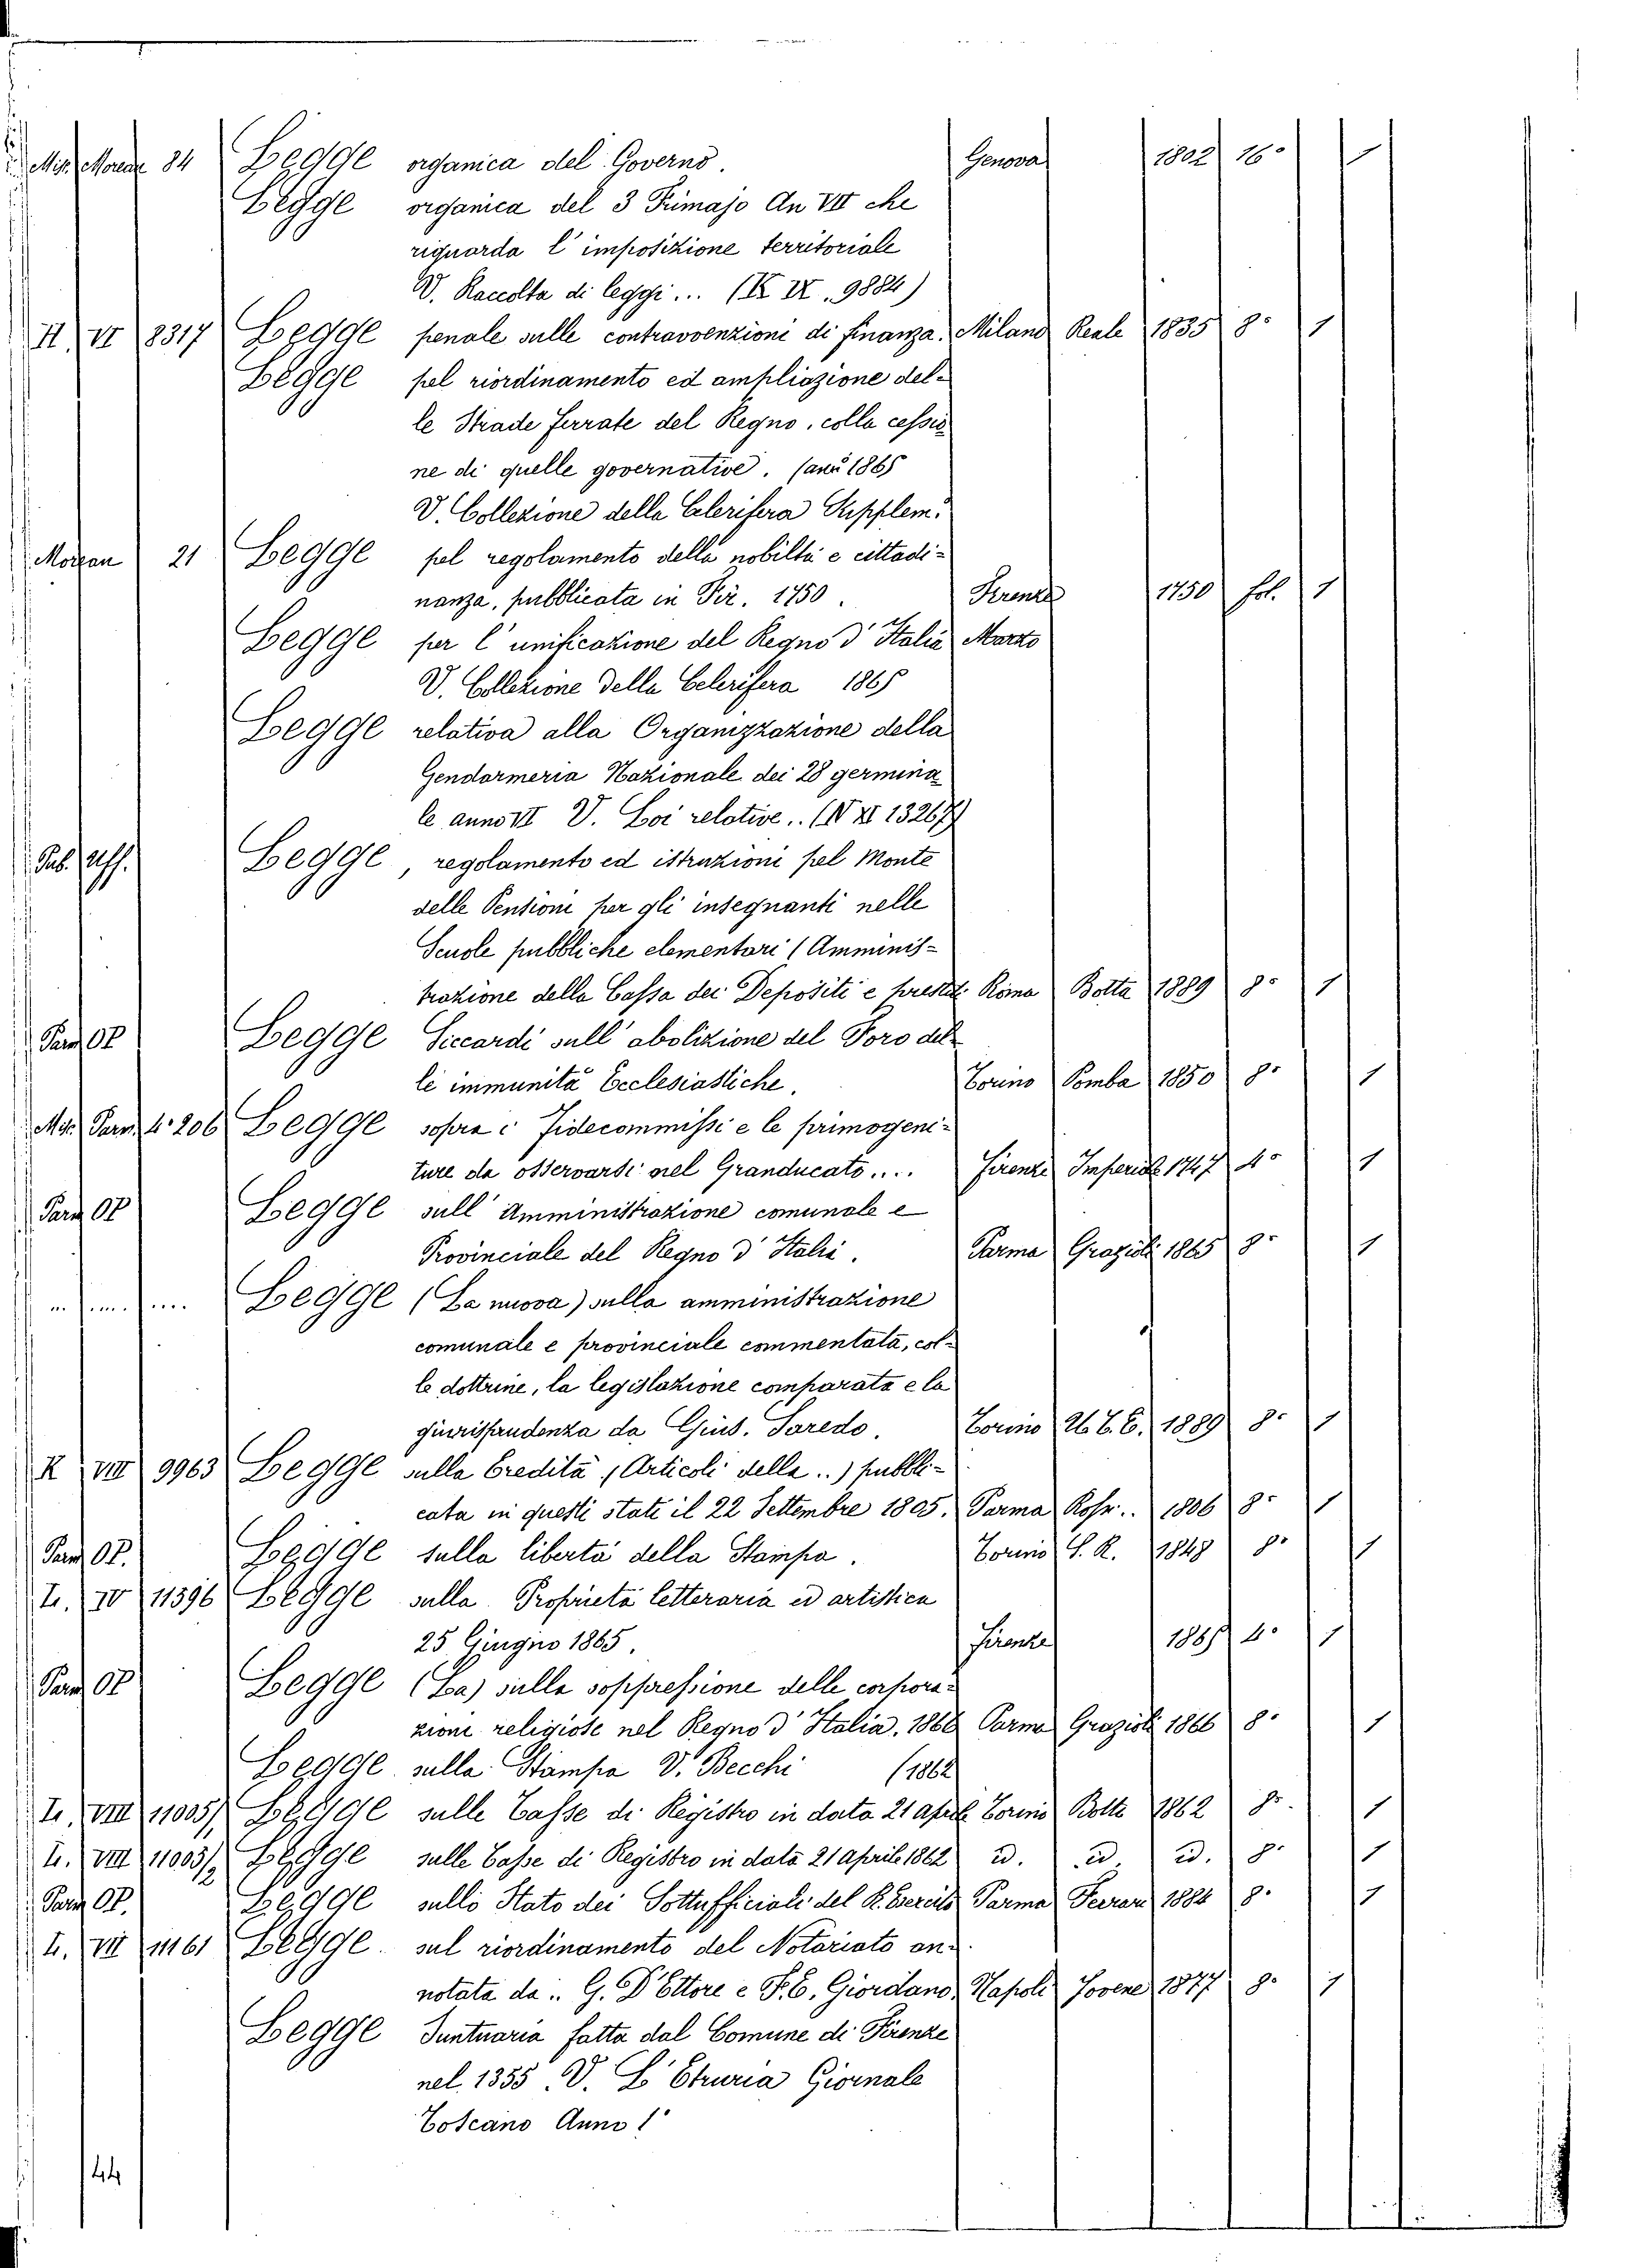 Mis. Moreau 84 Legge organica del Governo. Genova 1802 16° 1
Legge organica del 3 Frimajo An VII che
riguarda l'imposizione territoriale
V. Raccolta di leggi... (K IX. 9884)
H. VI 8317 Legge penale sulle contravvenzioni di finanza. Milano Reale 1835 8° 1
Legge pel riordinamento ed ampliazione del-
le Strade ferrate del Regno, colla cessio
ne di quelle governative. 1865
V. Collezione della Celerifera Supplem.
21 Legge pel regolamento della nobiltà e cittadi-
nanza, pubblicata in Fir. 1750. Firenze 1750 fol. 1
Legge per l'unificazione del Regno d'Italia Marzo
V. Collezione della Celerifera 1865
Legge relativa alla Organizzazione della
Gendarmeria Nazionale dei 28 germina
le anno VI V. Loi relative.. (N XI 13267)
Pub. Uff. Legge, regolamento ed istruzioni pel Monte
delle Pensioni per gli insegnanti nelle
Scuole pubbliche elementari (Amminis-
trazione della Cassa dei Depositi e prestiti Roma Botta 1889 8° 1
Parm OP Legge Siccardi sull'abolizione del Foro del-
le immunità Ecclesiastiche. Torino Pomba 1850 8° 1
Mis. Parm. 4° 206 Legge sopra i Fidecommissi e le primogeni-
ture da osservarsi nel Granducato.... Firenze Imperiale 1747 4° 1
Parm OP Legge sull'Amministrazione comunale e
Provinciale del Regno d'Italia. Parma Grazioli 1865 8° 1
" " " Legge (La nuova) sulla amministrazione
comunale e provinciale commentata, col-
le dottrine, la legislazione comparata e la
giurisprudenza da Gius. Saredo. Torino U.T.E. 1889 8° 1
K VIII 9963 Legge sulla Eredità (Articoli della..) pubbli-
cata in questi stati il 22 Settembre 1805. Parma Rossi.. 1806 8° 1
Parm OP. Legge sulla libertà della Stampa. Torino S. R. 1848 8° 1
L. IV 11396 Legge sulla Proprietà letteraria ed artistica
25 Giugno 1865. Firenze 1865 4° 1
Parm OP Legge (La) sulla soppressione delle corpora-
zioni religiose nel Regno d'Italia. 1866 Parma Grazioli 1866 8° 1
Legge sulla Stampa V. Becchi (1862
L. VIII 11005/1 Legge sulle Tasse di Registro in data 21 Aprile Torino Botta 1862 8° 1
L. VIII 11003/2 Legge sulle Tasse di Registro in data 21 Aprile 1862 id. id. id. 8° 1
Parm OP. Legge sullo Stato dei Sottufficiali del R. Esercito Parma Ferrari 1884 8° 1
L. VII 11161 Legge sul riordinamento del Notariato an-
notata da.. G. D'Ettore e F. E. Giordano. Napoli Jovene 1877 8° 1
Legge Suntuaria fatta dal Comune di Firenze
nel 1355. V. L'Etruria Giornale
Toscano Anno 1°
44